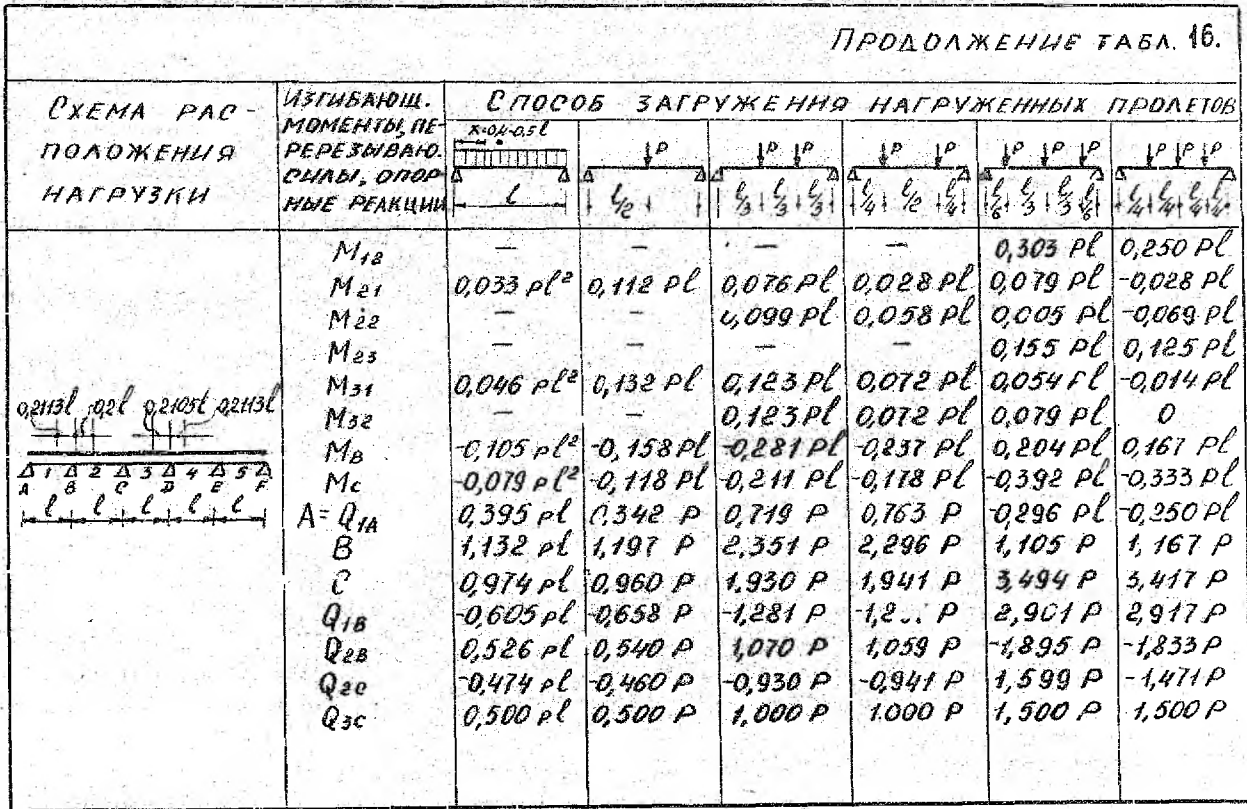 ПРОДОЛЖЕНИЕ ТАБЛ. 16.
СХЕМА РАСПОЛОЖЕНИЯ НАГРУЗКИ
ИЗГИБАЮЩ. МОМЕНТЫ, ПЕРЕРЕЗЫВАЮ. СИЛЫ, ОПОРНЫЕ РЕАКЦИИ
СПОСОБ ЗАГРУЖЕНИЯ НАГРУЖЕННЫХ ПРОЛЕТОВ
x=0,4-0,5l
l
P
l/2
P P
l/3 l/3 l/3
P P
l/4 l/2 l/4
P P P
l/6 l/3 l/3 l/6
P P P
l/4 l/4 l/4 l/4
0,2113l 0,2l 0,2105l 0,2113l
1 2 3 4 5
A B C D E F
l l l l l
M12 — — — — 0,303 Pl 0,250 Pl
M21 0,033 pl² 0,112 Pl 0,076 Pl 0,028 Pl 0,079 Pl -0,028 Pl
M22 — — 0,099 Pl 0,058 Pl 0,005 Pl -0,069 Pl
M23 — — — — 0,155 Pl 0,125 Pl
M31 0,046 pl² 0,132 Pl 0,123 Pl 0,072 Pl 0,054 Pl -0,014 Pl
M32 — — 0,123 Pl 0,072 Pl 0,079 Pl 0
MB -0,105 pl² -0,158 Pl -0,281 Pl -0,237 Pl 0,204 Pl 0,167 Pl
Mc -0,079 pl² -0,118 Pl -0,211 Pl -0,178 Pl -0,392 Pl -0,333 Pl
A=Q1A 0,395 pl 0,342 P 0,719 P 0,763 P -0,296 Pl -0,250 Pl
B 1,132 pl 1,197 P 2,351 P 2,296 P 1,105 P 1,167 P
C 0,974 pl 0,960 P 1,930 P 1,941 P 3,494 P 3,417 P
Q1B -0,605 pl -0,658 P -1,281 P 2,901 P 2,917 P
Q2B 0,526 pl 0,540 P 1,070 P 1,059 P -1,895 P -1,833 P
Q2C -0,474 pl -0,460 P -0,930 P -0,941 P 1,599 P -1,471 P
Q3C 0,500 pl 0,500 P 1,000 P 1.000 P 1,500 P 1,500 P